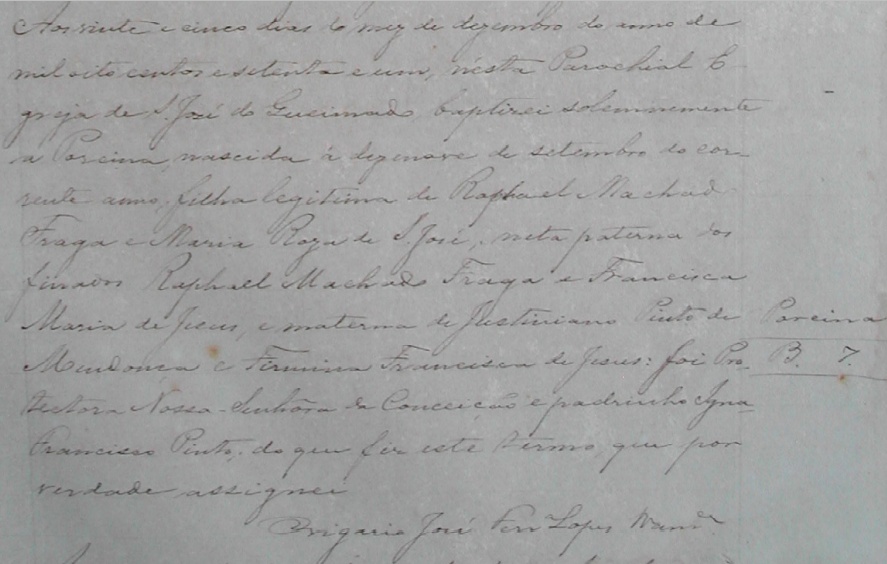 Aos vinte e cinco dias do mez de dezembro do anno de
mil oito centos e setenta e um, nésta Parochial E
greja de S. José do Queimado baptizei solemnemente
a Porcina, nascida á dezenove de setembro do cor-
rente anno, filha legitima de Raphael Machado
Fraga e Maria Roza de S. José, neta paterna dos
finados Raphael Machado Fraga e Francisca
Maria de Jesus, e materna de Justiniano Pinto de
Mendonça e Firmina Francisca de Jesus: foi Pro-
tectora Nossa Senhora da Conceição e padrinho Igna
Francisco Pinto, do que fiz este termo, que por
verdade assignei
José Ferrª Lopes
Porcina
B. 7.